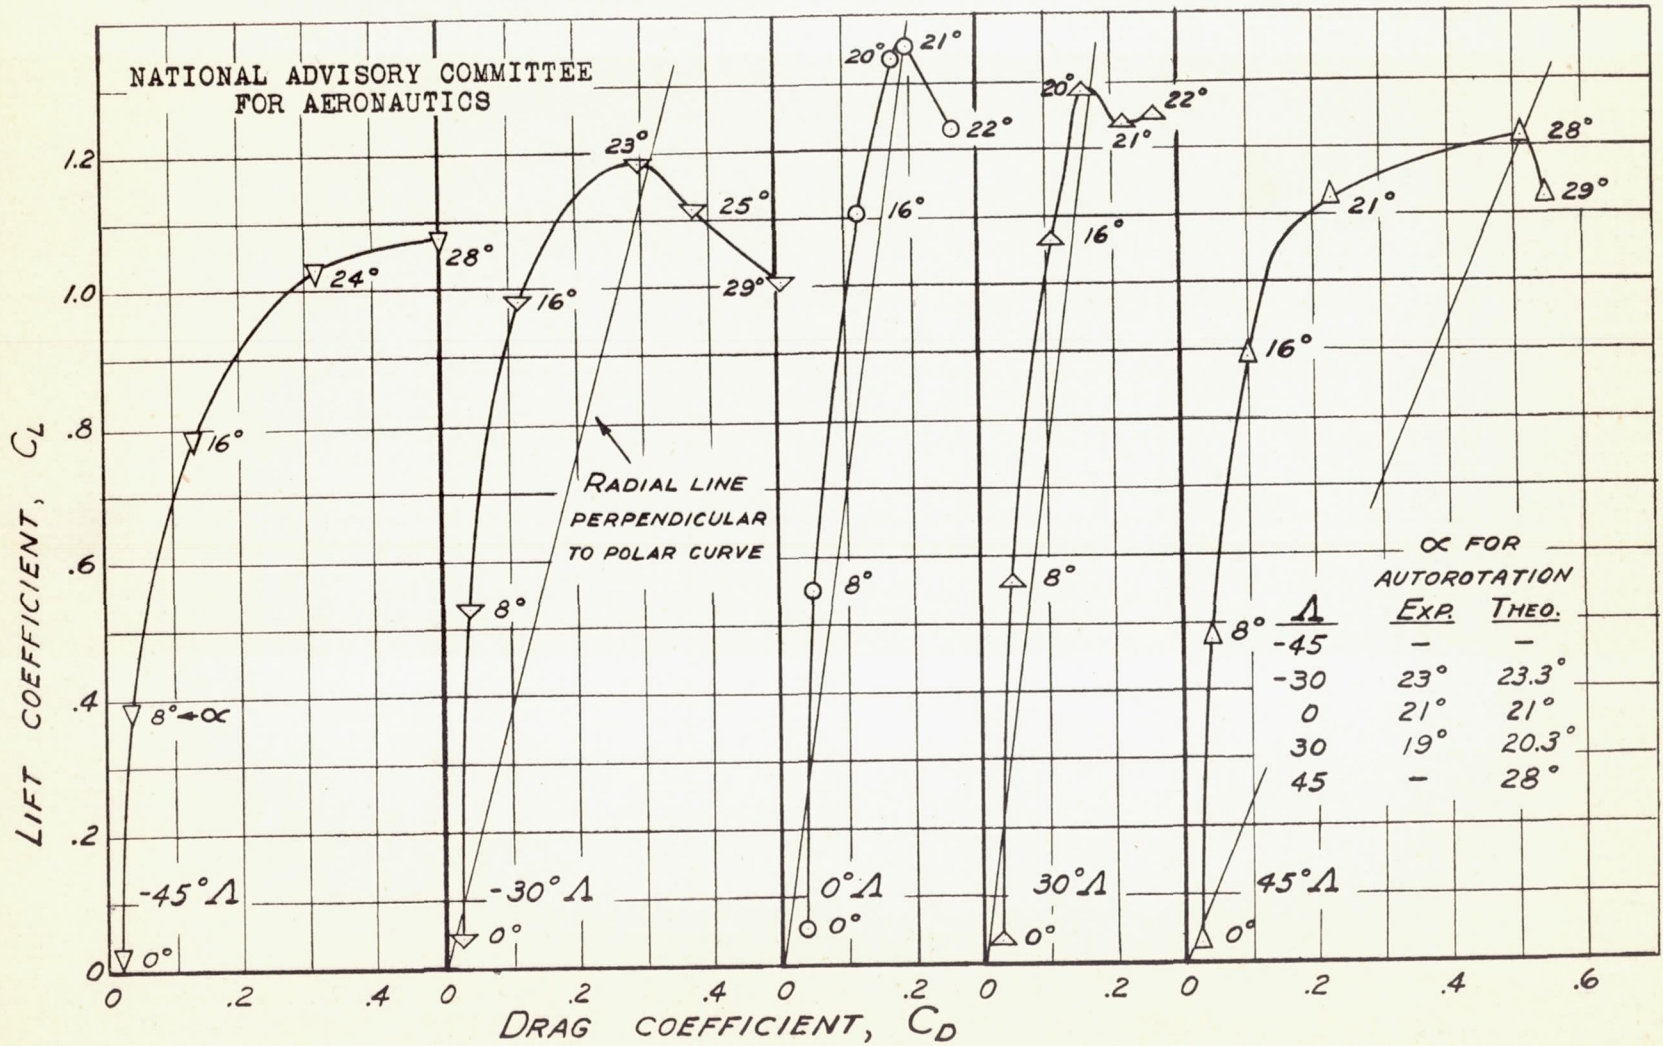 NATIONAL ADVISORY COMMITTEE
FOR AERONAUTICS
LIFT COEFFICIENT, CL
1.2
1.0
.8
.6
.4
.2
0
28°
24°
16°
8°←α
-45°Λ
0°
23°
25°
29°
16°
RADIAL LINE
PERPENDICULAR
TO POLAR CURVE
8°
-30°Λ
0°
20° 21°
22°
16°
8°
0°Λ
0°
20° 22°
21°
16°
8°
30°Λ
0°
28°
29°
21°
16°
8°
45°Λ
0°
α FOR
AUTOROTATION
Λ EXP. THEO.
-45 – –
-30 23° 23.3°
0 21° 21°
30 19° 20.3°
45 – 28°
0 .2 .4 0 .2 .4 0 .2 0 .2 0 .2 .4 .6
DRAG COEFFICIENT, CD